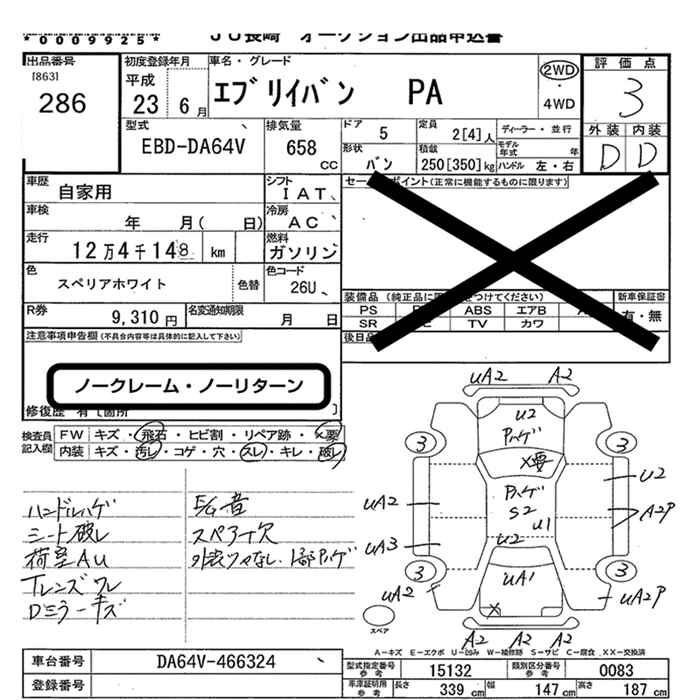 *0009925*
JU長崎 オークション出品申込書
出品番号
[863]
286
初度登録年月
平成
23年 6月
車名・グレード
エブリイバン PA
2WD
・
4WD
評価点
3
外装 内装
D D
型式
EBD-DA64V
排気量
658
CC
ドア 5
形状 バン
定員 2[4]人
積載 250[350]kg
ディーラー・並行
モデル年式 年
ハンドル 左・右
車歴
自家用
シフト
IAT
車検
年 月( 日)
冷房
AC
走行
12万4千148 km
燃料
ガソリン
色
スペリアホワイト
色替
色コード
26U
R券
9,310円
名変通知期限
月 日
セールスポイント(正常に機能するものに限ります)
装備品
新車保証書
PS ABS エアB
SR TV カワ
有・無
注意事項申告欄(不具合内容等は具体的に記入して下さい)
ノークレーム・ノーリターン
修復歴 有[箇所 ]
検査員記入欄
FW キズ・飛石・ヒビ割・リペア跡・×要
内装 キズ・汚レ・コゲ・穴・スレ・キレ・破レ
ハンドルハゲ
シート破レ
荷室AU
Tレンズワレ
Dミラーキズ
E/G音
スペアー欠
外装ツヤなし、1部Pハゲ
UA2 A2
U2
Pハゲ
3 3
X要
Pハゲ
S2
U1
U2
UA2
U2
A2P
UA3
3 3
UA1
UA2
UA2P
X
スペア
A2 A2 A2
A－キズ E－エクボ U－凹み W－補修跡 S－サビ C－腐食 XX－交換済
車台番号
DA64V-466324
登録番号
型式指定番号
参考
15132
類別区分番号
参考
0083
車庫証明用
参考
長さ 339 cm 幅 147 cm 高さ 187 cm